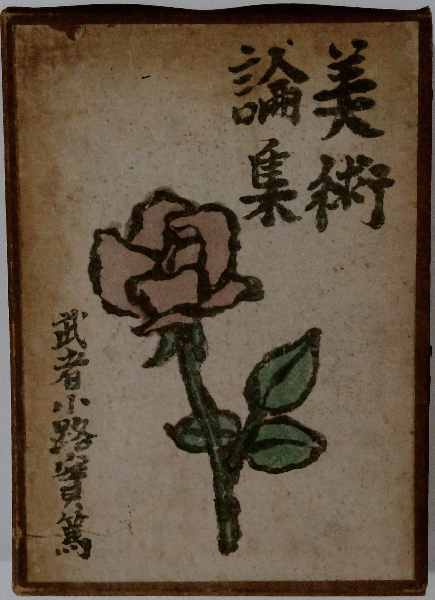 美術
論集
武者小路實篤